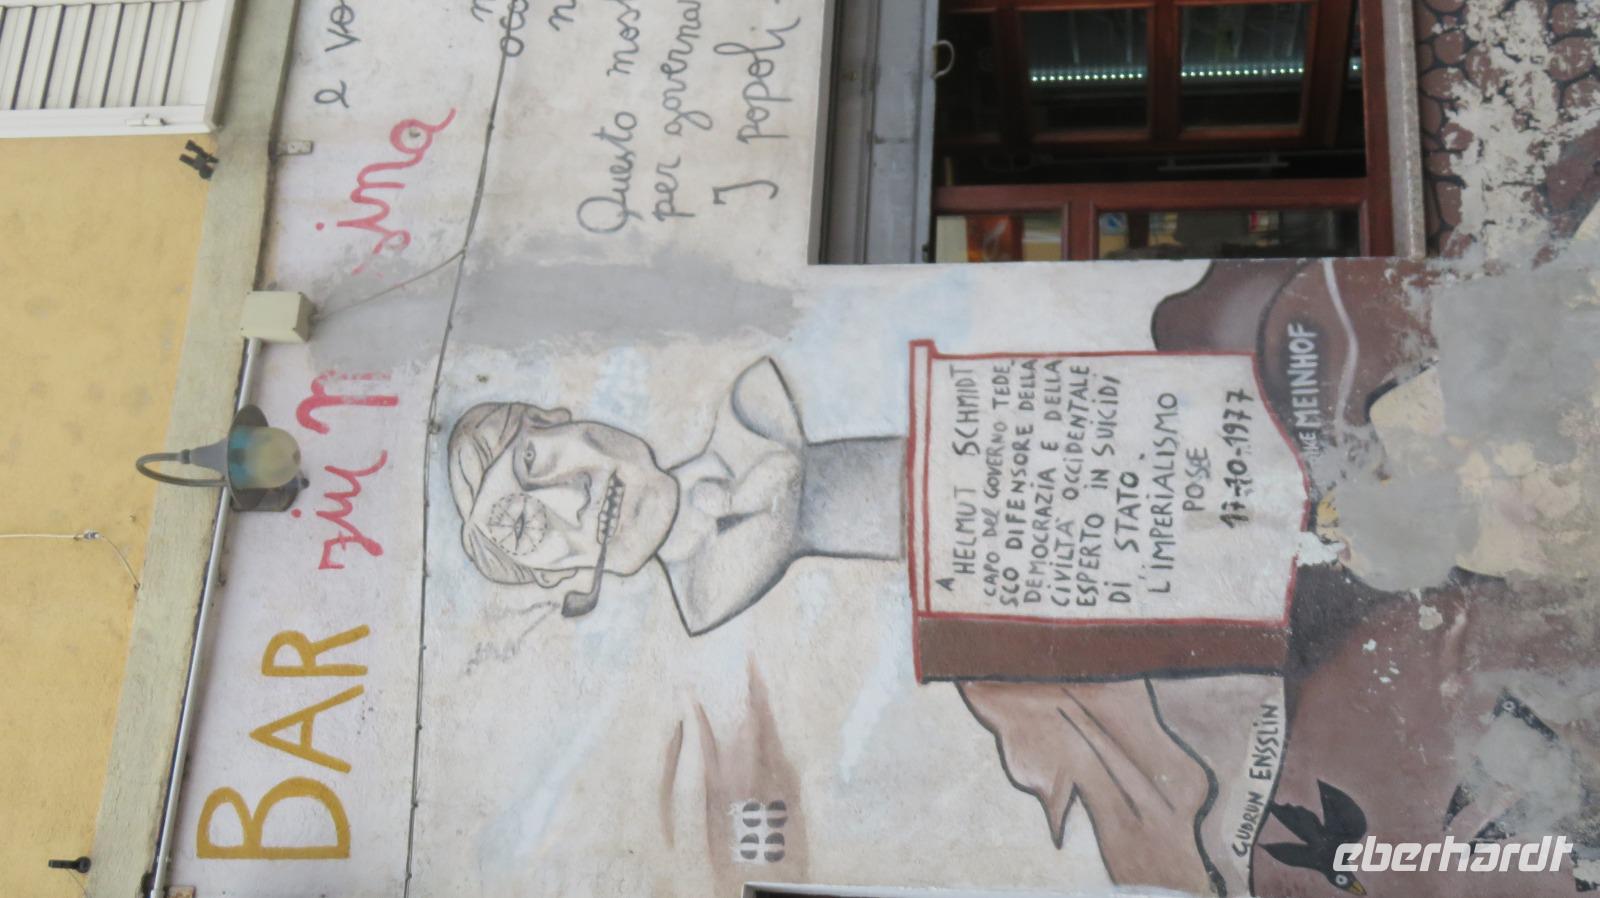 BAR ziu
sina
e vo
Questo most
per governa
I popoli
A
HELMUT SCHMIDT
CAPO DEL GOVERNO TEDE-
SCO DIFENSORE DELLA
DEMOCRAZIA E DELLA
CIVILTA' OCCIDENTALE
ESPERTO IN SUICIDI
DI STATO
L'IMPERIALISMO
POSE
17-10-1977
88
GUDRUN ENSSLIN
IKE MEINHOF
eberhardt